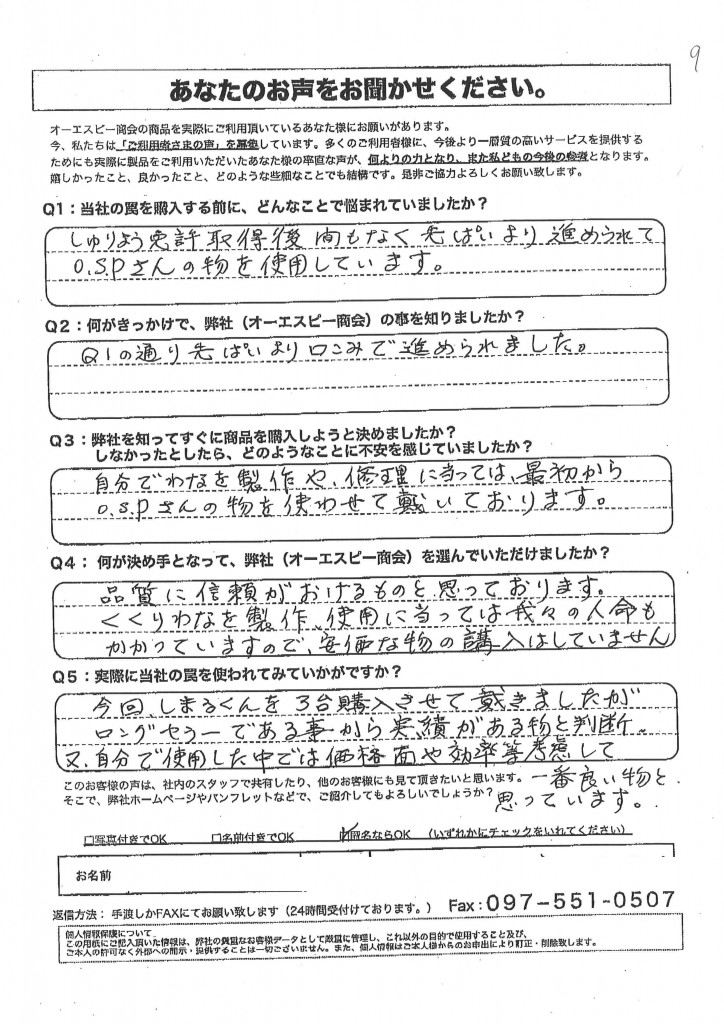 9
あなたのお声をお聞かせください。
オーエスピー商会の商品を実際にご利用頂いているあなた様にお願いがあります。
今、私たちは「ご利用者さまの声」を募集しています。多くのご利用者様に、今後より一層質の高いサービスを提供する
ためにも実際に製品をご利用いただいたあなた様の率直な声が、何よりの力となり、また私どもの今後の参考となります。
嬉しかったこと、良かったこと、どのような些細なことでも結構です。是非ご協力よろしくお願い致します。
Q1：当社の罠を購入する前に、どんなことで悩まれていましたか？
しゅりょう免許取得後間もなく先ぱいより進められて
O.S.Pさんの物を使用しています。
Q2：何がきっかけで、弊社（オーエスピー商会）の事を知りましたか？
Q1の通り先ぱいより口こみで進められました。
Q3：弊社を知ってすぐに商品を購入しようと決めましたか？
しなかったとしたら、どのようなことに不安を感じていましたか？
自分でわなを製作や、修理に当っては、最初から
O.S.Pさんの物を使わせて戴いております。
Q4： 何が決め手となって、弊社（オーエスピー商会）を選んでいただけましたか？
品質に信頼がおけるものと思っております。
くくりわなを製作、使用に当っては我々の人命も
かかっていますので、安価な物の購入はしていません
Q5：実際に当社の罠を使われてみていかがですか？
今回、しまるくんを3台購入させて戴きましたが
ロングセラーである事から実績がある物と判断、
又、自分で使用した中では価格面や効率等考慮して
一番良い物と、
思っています。
このお客様の声は、社内のスタッフで共有したり、他のお客様にも見て頂きたいと思います。
そこで、弊社ホームページやパンフレットなどで、ご紹介してもよろしいでしょうか？
□写真付きでOK □名前付きでOK ☑匿名ならOK （いずれかにチェックをいれてください）
お名前
返信方法： 手渡しかFAXにてお願い致します（24時間受付けております。） Fax：097-551-0507
個人情報保護について
この用紙にご記入頂いた情報は、弊社の貴重なお客様データとして厳重に管理し、これ以外の目的で使用すること及び、
ご本人の許可なく外部への開示・提供することは一切ございません。また、個人情報はご本人様からのお申出により訂正・削除致します。